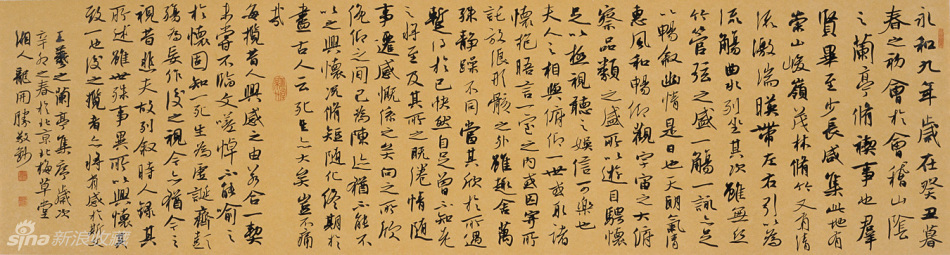 永和九年歲在癸丑暮
春之初會於會稽山陰
之蘭亭脩禊事也羣
賢畢至少長咸集此地有
崇山峻嶺茂林脩竹又有清
流激湍暎帶左右引以為
流觴曲水列坐其次雖無絲
竹管弦之盛一觴一詠亦足
以暢敘幽情是日也天朗氣清
惠風和暢仰觀宇宙之大俯
察品類之盛所以遊目騁懷
足以極視聽之娛信可樂也
夫人之相與俯仰一世或取諸
懷抱晤言一室之內或因寄所
託放浪形骸之外雖趣舍萬
殊靜躁不同當其欣於所遇
暫得於己快然自足曾不知老
之將至及其所之既倦情隨
事遷感慨係之矣向之所欣
俛仰之間已為陳迹猶不能不
以之興懷況脩短隨化終期於
盡古人云死生亦大矣豈不痛
哉
每攬昔人興感之由若合一契
未嘗不臨文嗟悼不能喻之
於懷固知一死生為虛誕齊彭
殤為妄作後之視今亦猶今之
視昔悲夫故列敘時人錄其
所述雖世殊事異所以興懷其
致一也後之攬者亦將有感於斯
文 王羲之蘭亭集序歲次
辛卯之春於北京北梅草堂
湘人龍開勝敬錄
sina新浪收藏